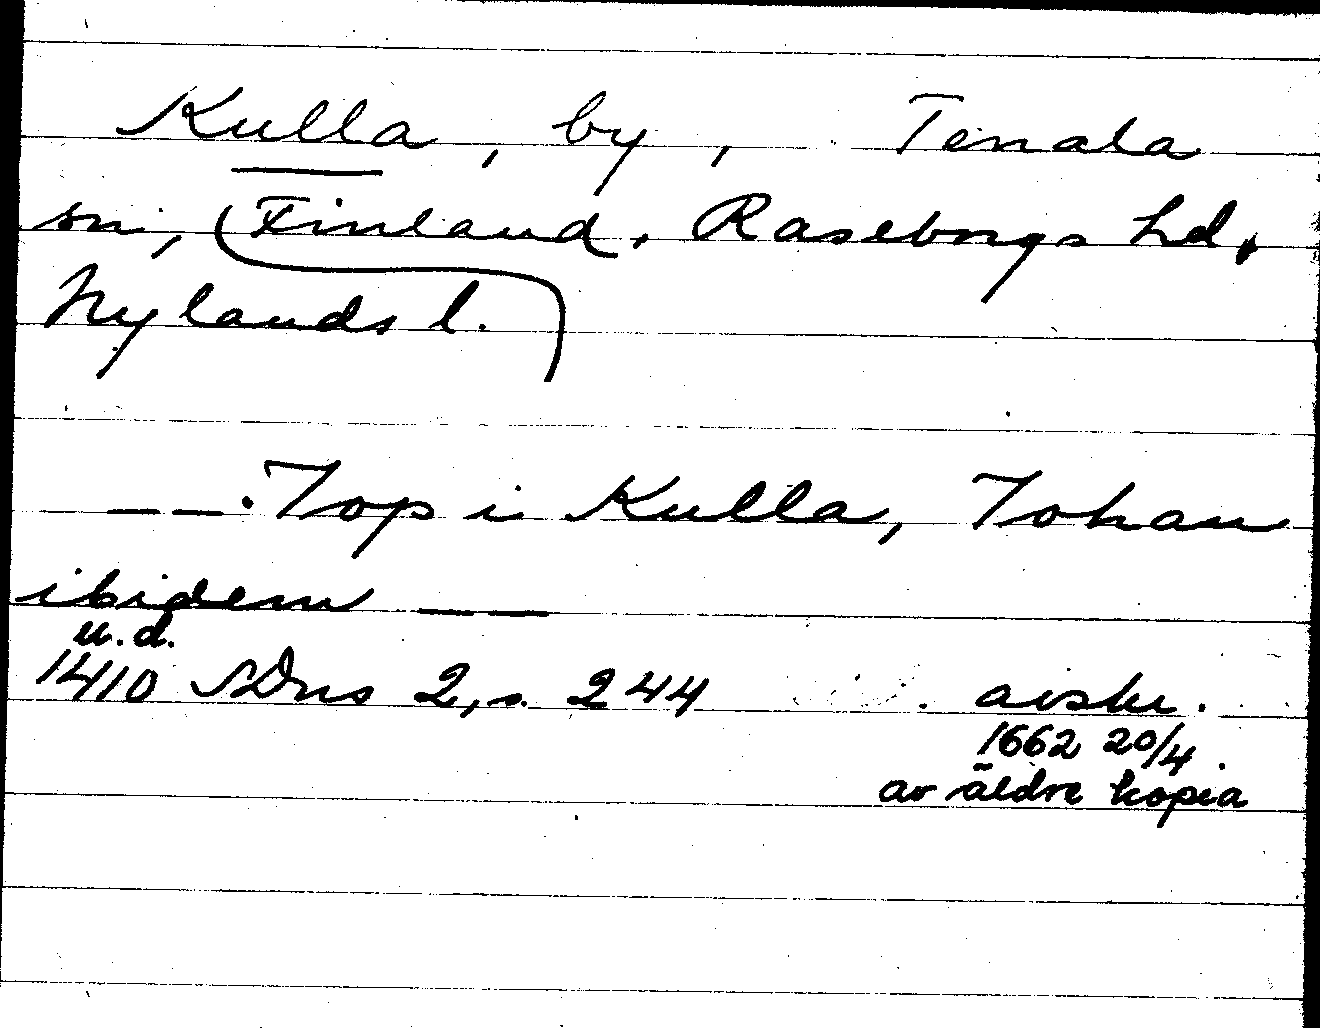 Kulla, by, Tenala
sn, Finland, Raseborgs hd,
Nylands l.
— — Jop i Kulla, Johan
ibidem — —
u.d.
1410 SDns 2, s. 244 avskr.
1662 20/4.
av äldre kopia